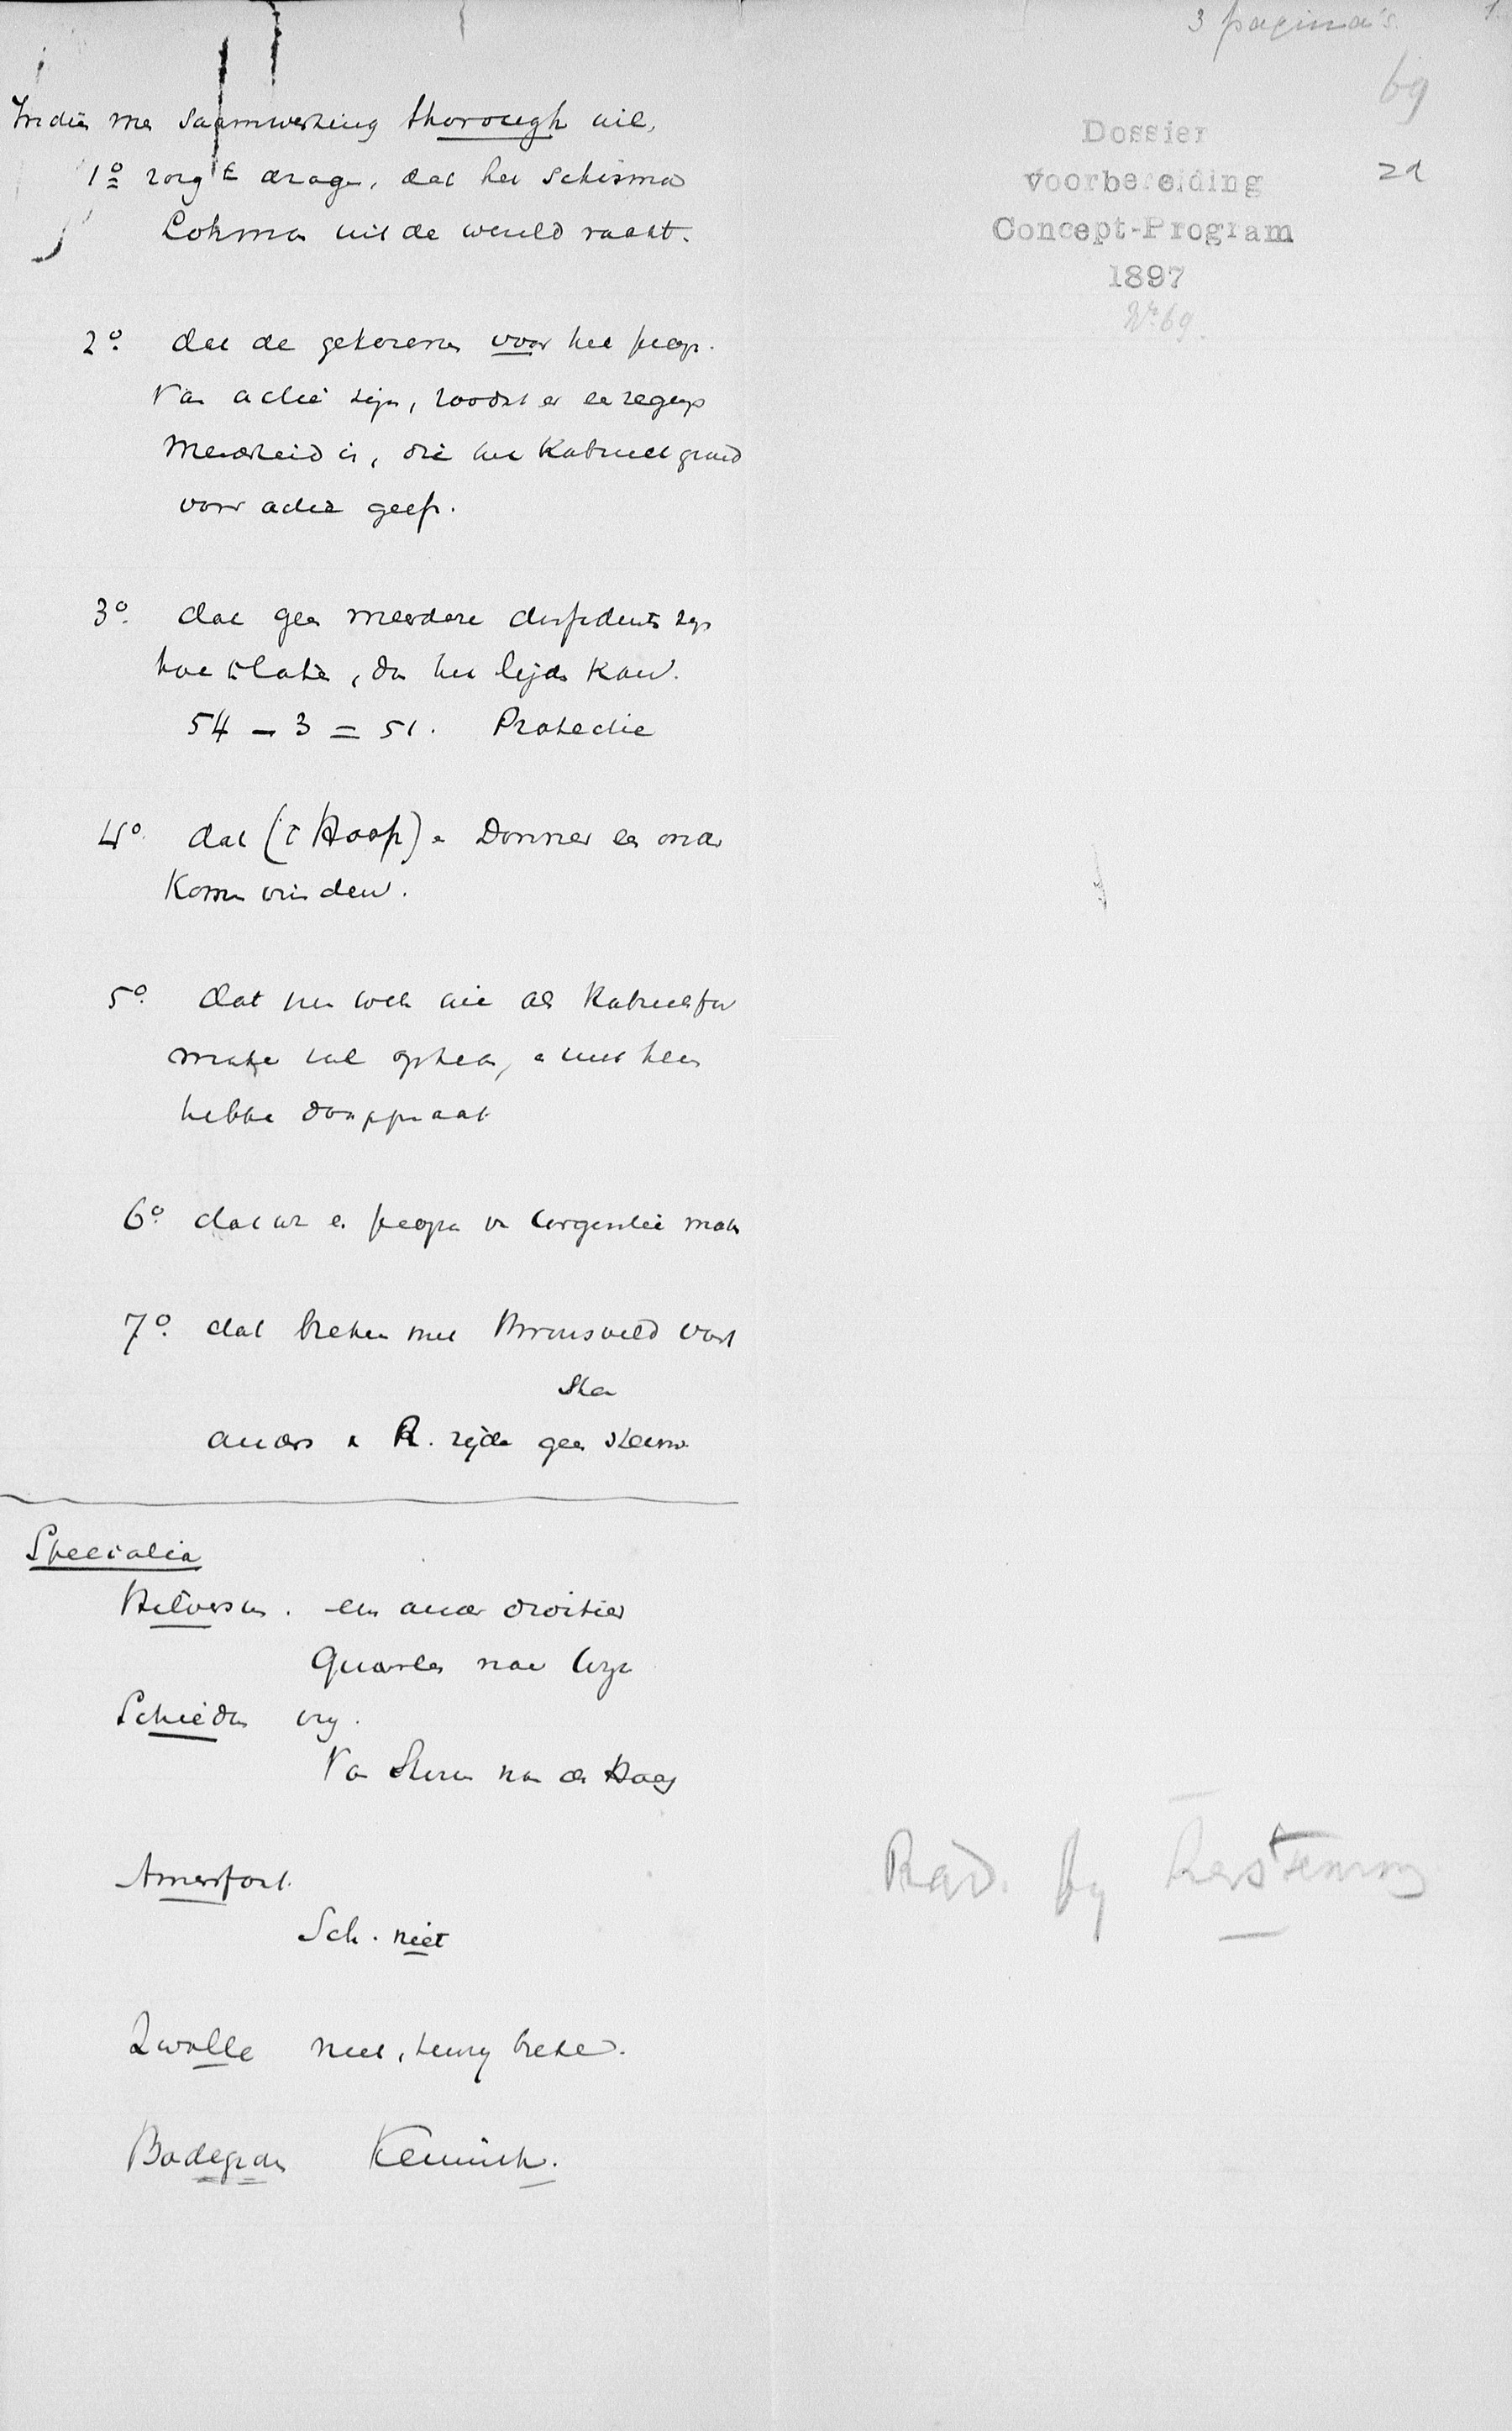 3 pagina's. 1.
69
21
Dossier
voorbereiding
Concept-Program
1897
No. 69.
Indien men saamwerking thorough wil,
1o zorg te dragen, dat het schisma
Lohman uit de wereld raakt.
2o. dat de gekozenen voor het progr.
van actie zijn, zoodat er een regeings
meerderheid is, die het Kabinet grond
voor actie geeft.
3o. dat geen meerdere dissidents zijn
toe te laten, dan het lijden kan.
54 - 3 = 51. Protectie
4o. dat ('t Hooft) en Donner er onder
Komen vinden.
5o. dat men toch wie als Kabinetsfor
mateur zal optreden, en met hem
hebbe doorgepraat
6o. dat we een progra van urgentie maken
7o. dat breken met Bronsveld vast
sta
anders de R. zijde geen steun.
Specialia
Hilversum. een ander droitier
Quarles naar
Schiedam
Van naar den Haag
Amersfort.
Sch. niet
Zwolle niet, breken.
Bodegraven Kennink.
Rad. by kerstening